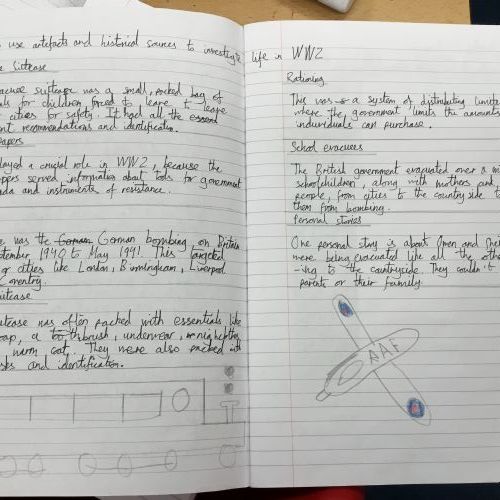 use artefacts and historical sources to investigate life in WW2
Suitcase
suitcase was a small, packed bag of
for children forced to leave to leave
cities for safety. It had all the essend
recommendations and identification.
papers
played a crucial role in WW2, because the
served information about tools for government
and instruments of resistance.
was the German German bombing on Britain
September 1940 to May 1941. This targeted
cities like London, Birmingham, Liverpool
Coventry.
suitcase
suitcase was often packed with essentials like
soap, a toothbrush, underwear,
warm coat, They were also packed with
masks and identification.
Rationing
This was a system of distributing limited
where the government limits the amounts
individuals can purchase.
School evacuees
The British government evacuated over a
schoolchildren, along with mothers and
people, from cities to the country side to
them from bombing.
Personal stories
One personal story is about Gwen and
were being evacuated like all the other
-ing to the countryside. They couldn't
parents or their family.
RAF